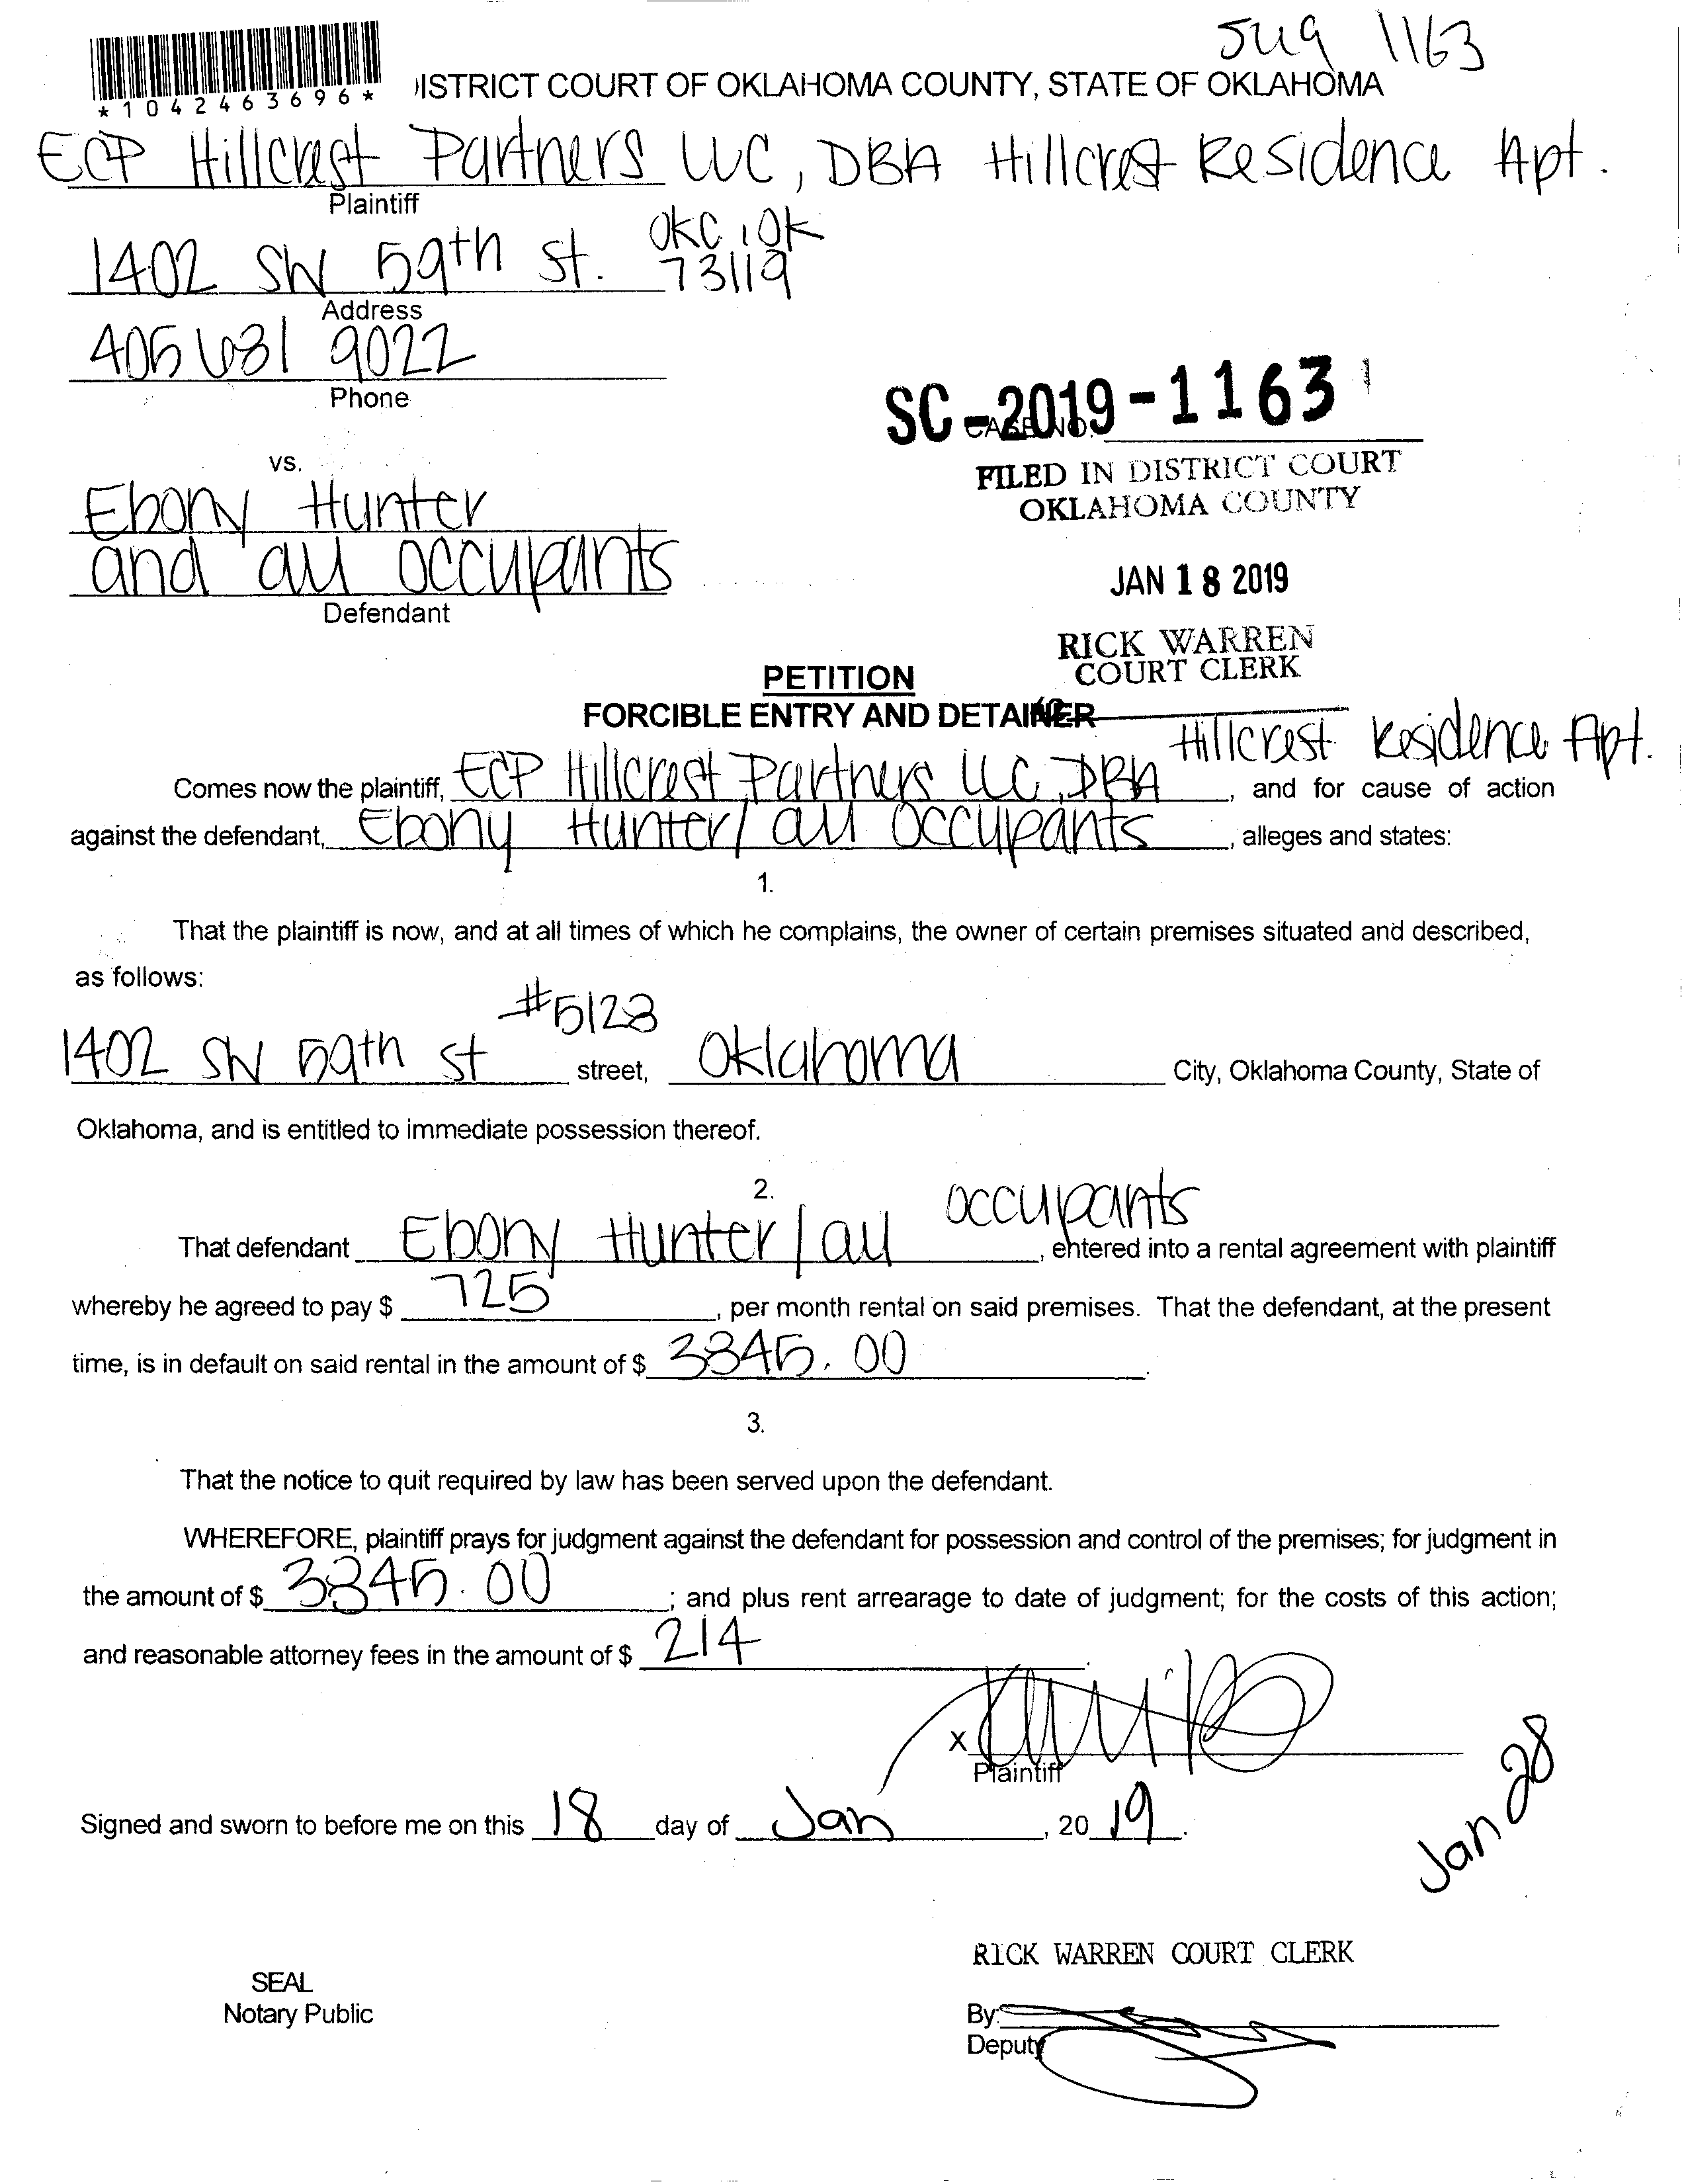 SUG 1163
*1042463696*
ISTRICT COURT OF OKLAHOMA COUNTY, STATE OF OKLAHOMA
ECP Hillcrest Partners LLC, DBA Hillcrest Residence Apt.
Plaintiff
1402 SW 59th St. OKC, OK 73119
Address
405 631 9022
Phone
SC-2019-1163
CASE NO.
vs.
FILED IN DISTRICT COURT
OKLAHOMA COUNTY
Ebony Hunter
and all occupants
Defendant
JAN 18 2019
RICK WARREN
COURT CLERK
PETITION
FORCIBLE ENTRY AND DETAINER
Hillcrest Residence Apt.
Comes now the plaintiff, ECP Hillcrest Partners LLC, DBA, and for cause of action
against the defendant, Ebony Hunter/ all occupants, alleges and states:
1.
That the plaintiff is now, and at all times of which he complains, the owner of certain premises situated and described,
as follows:
#5128
1402 SW 59th St street, Oklahoma City, Oklahoma County, State of
Oklahoma, and is entitled to immediate possession thereof.
2.
That defendant Ebony Hunter / all occupants, entered into a rental agreement with plaintiff
whereby he agreed to pay $ 725, per month rental on said premises. That the defendant, at the present
time, is in default on said rental in the amount of $ 3345.00.
3.
That the notice to quit required by law has been served upon the defendant.
WHEREFORE, plaintiff prays for judgment against the defendant for possession and control of the premises; for judgment in
the amount of $ 3345.00; and plus rent arrearage to date of judgment; for the costs of this action;
and reasonable attorney fees in the amount of $ 214.
X
Plaintiff
Signed and sworn to before me on this 18 day of Jan, 20 19.
Jan 28
RICK WARREN COURT CLERK
SEAL
Notary Public
By:
Deputy